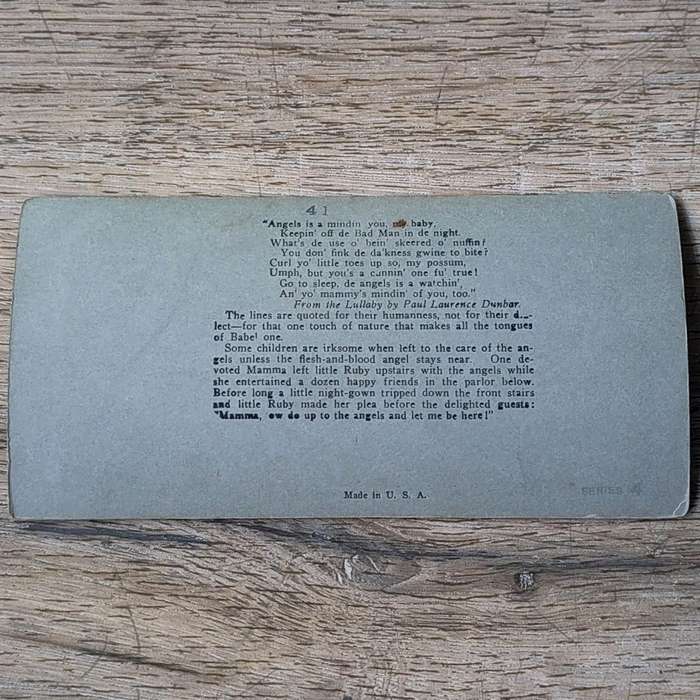 41
"Angels is a mindin' you, my baby,
Keepin' off de Bad Man in de night.
What's de use o' bein' skeered o' nuffin?
You don' fink de da'kness gwine to bite?
Curl yo' little toes up so, my possum,
Umph, but you's a cunnin' one fu' true!
Go to sleep, de angels is a watchin',
An' yo' mammy's mindin' of you, too."
From the Lullaby by Paul Laurence Dunbar.
The lines are quoted for their humanness, not for their
lect—for that one touch of nature that makes all the tongues
of Babel one.
Some children are irksome when left to the care of the an-
gels unless the flesh-and-blood angel stays near. One de-
voted Mamma left little Ruby upstairs with the angels while
she entertained a dozen happy friends in the parlor below.
Before long a little night-gown tripped down the front stairs
and little Ruby made her plea before the delighted guests:
"Mamma, do up to the angels and let me be here!"
Made in U. S. A.
SERIES 4